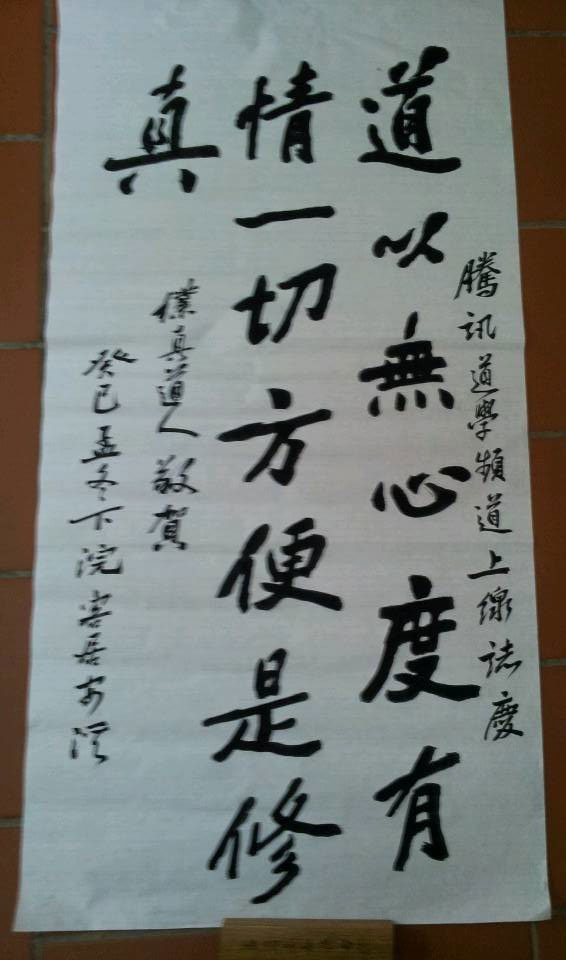 騰訊道學頻道上線誌慶
道以無心度有
情一切方便是修
真
樸真道人敬賀
癸巳孟冬下浣客居